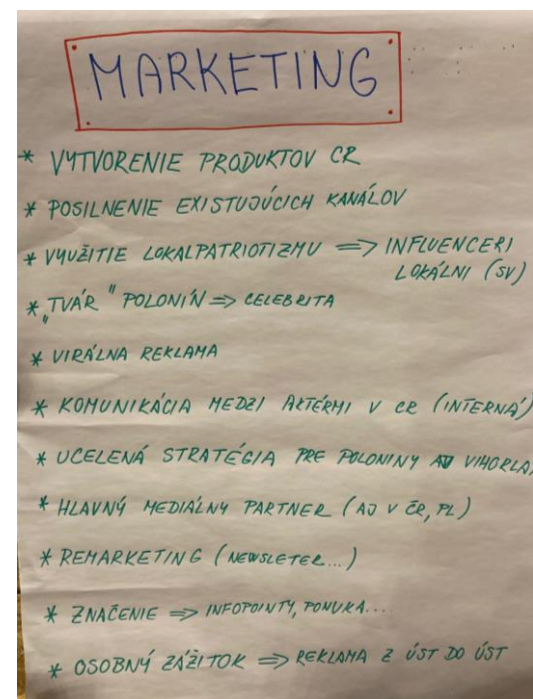 MARKETING
* VYTVORENIE PRODUKTOV CR
* POSILNENIE EXISTUJÚCICH KANÁLOV
* VYUŽITIE LOKALPATRIOTIZMU => INFLUENCERI
LOKÁLNI (SV)
* „TVÁR" POLONÍN => CELEBRITA
* VIRÁLNA REKLAMA
* KOMUNIKÁCIA MEDZI AKTÉRMI V CR (INTERNÁ)
* UCELENÁ STRATÉGIA PRE POLONINY A VIHORLA
* HLAVNÝ MEDIÁLNY PARTNER (AJ V ČR, PL)
* REMARKETING (NEWSLETER...)
* ZNAČENIE => INFOPOINTY, PONUKA...
* OSOBNÝ ZÁŽITOK => REKLAMA Z ÚST DO ÚST